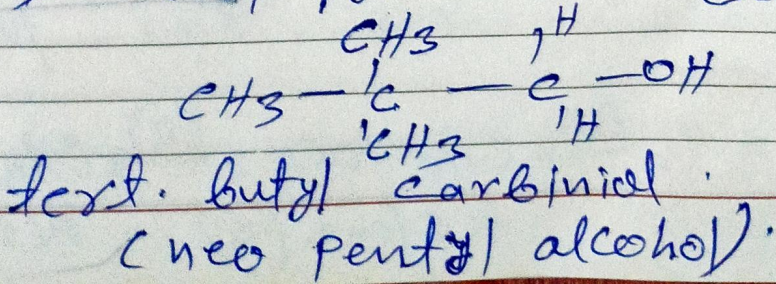 CH3 H
CH3 - C - C - OH
CH3 H
tert. butyl carbinial.
(neo pentyl alcohol).